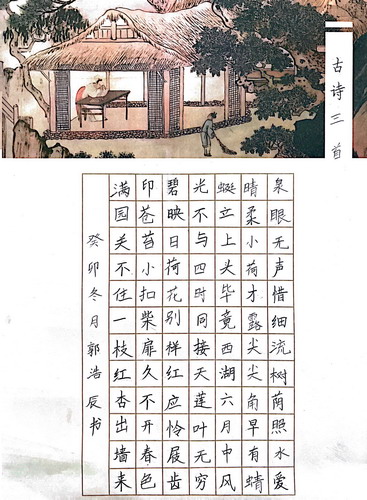 古诗三首
泉眼无声惜细流树荫照水爱
晴柔小荷才露尖尖角早有蜻
蜓立上头毕竟西湖六月中风
光不与四时同接天莲叶无穷
碧映日荷花别样红应怜展齿
印苍苔小扣柴扉久不开春色
满园关不住一枝红杏出墙来
癸卯冬月郭浩辰书